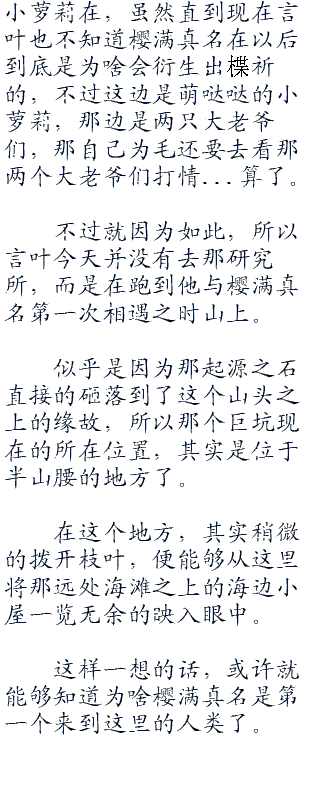 小萝莉在，虽然直到现在言
叶也不知道樱满真名在以后
到底是为啥会衍生出楪祈
的，不过这边是萌哒哒的小
萝莉，那边是两只大老爷
们，那自己为毛还要去看那
两个大老爷们打情...算了。
不过就因为如此，所以
言叶今天并没有去那研究
所，而是在跑到他与樱满真
名第一次相遇之时山上。
似乎是因为那起源之石
直接的砸落到了这个山头之
上的缘故，所以那个巨坑现
在的所在位置，其实是位于
半山腰的地方了。
在这个地方，其实稍微
的拨开枝叶，便能够从这里
将那远处海滩之上的海边小
屋一览无余的映入眼中。
这样一想的话，或许就
能够知道为啥樱满真名是第
一个来到这里的人类了。